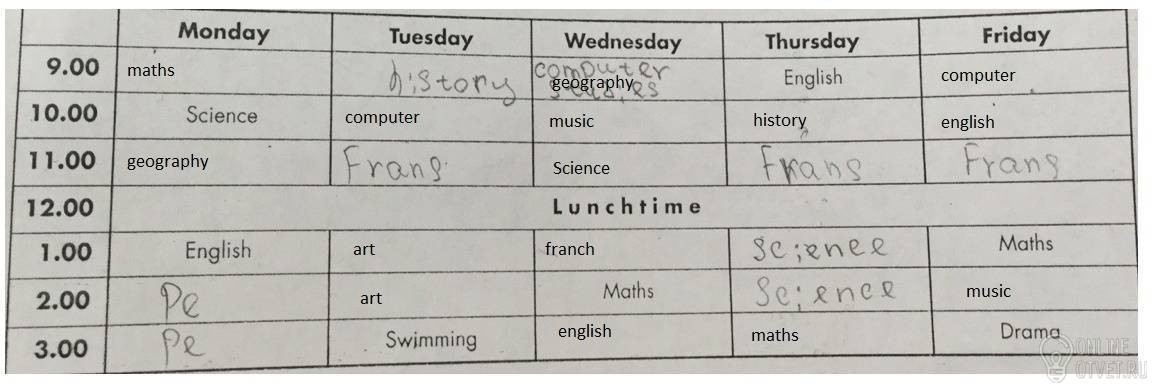 Monday Tuesday Wednesday Thursday Friday
9.00 maths history computer studies geography English computer
10.00 Science computer music history english
11.00 geography Frans Science Frans Frans
12.00 Lunchtime
1.00 English art franch Science Maths
2.00 Pe art Maths Science music
3.00 Pe Swimming english maths Drama
ONLINE
OTVET.RU